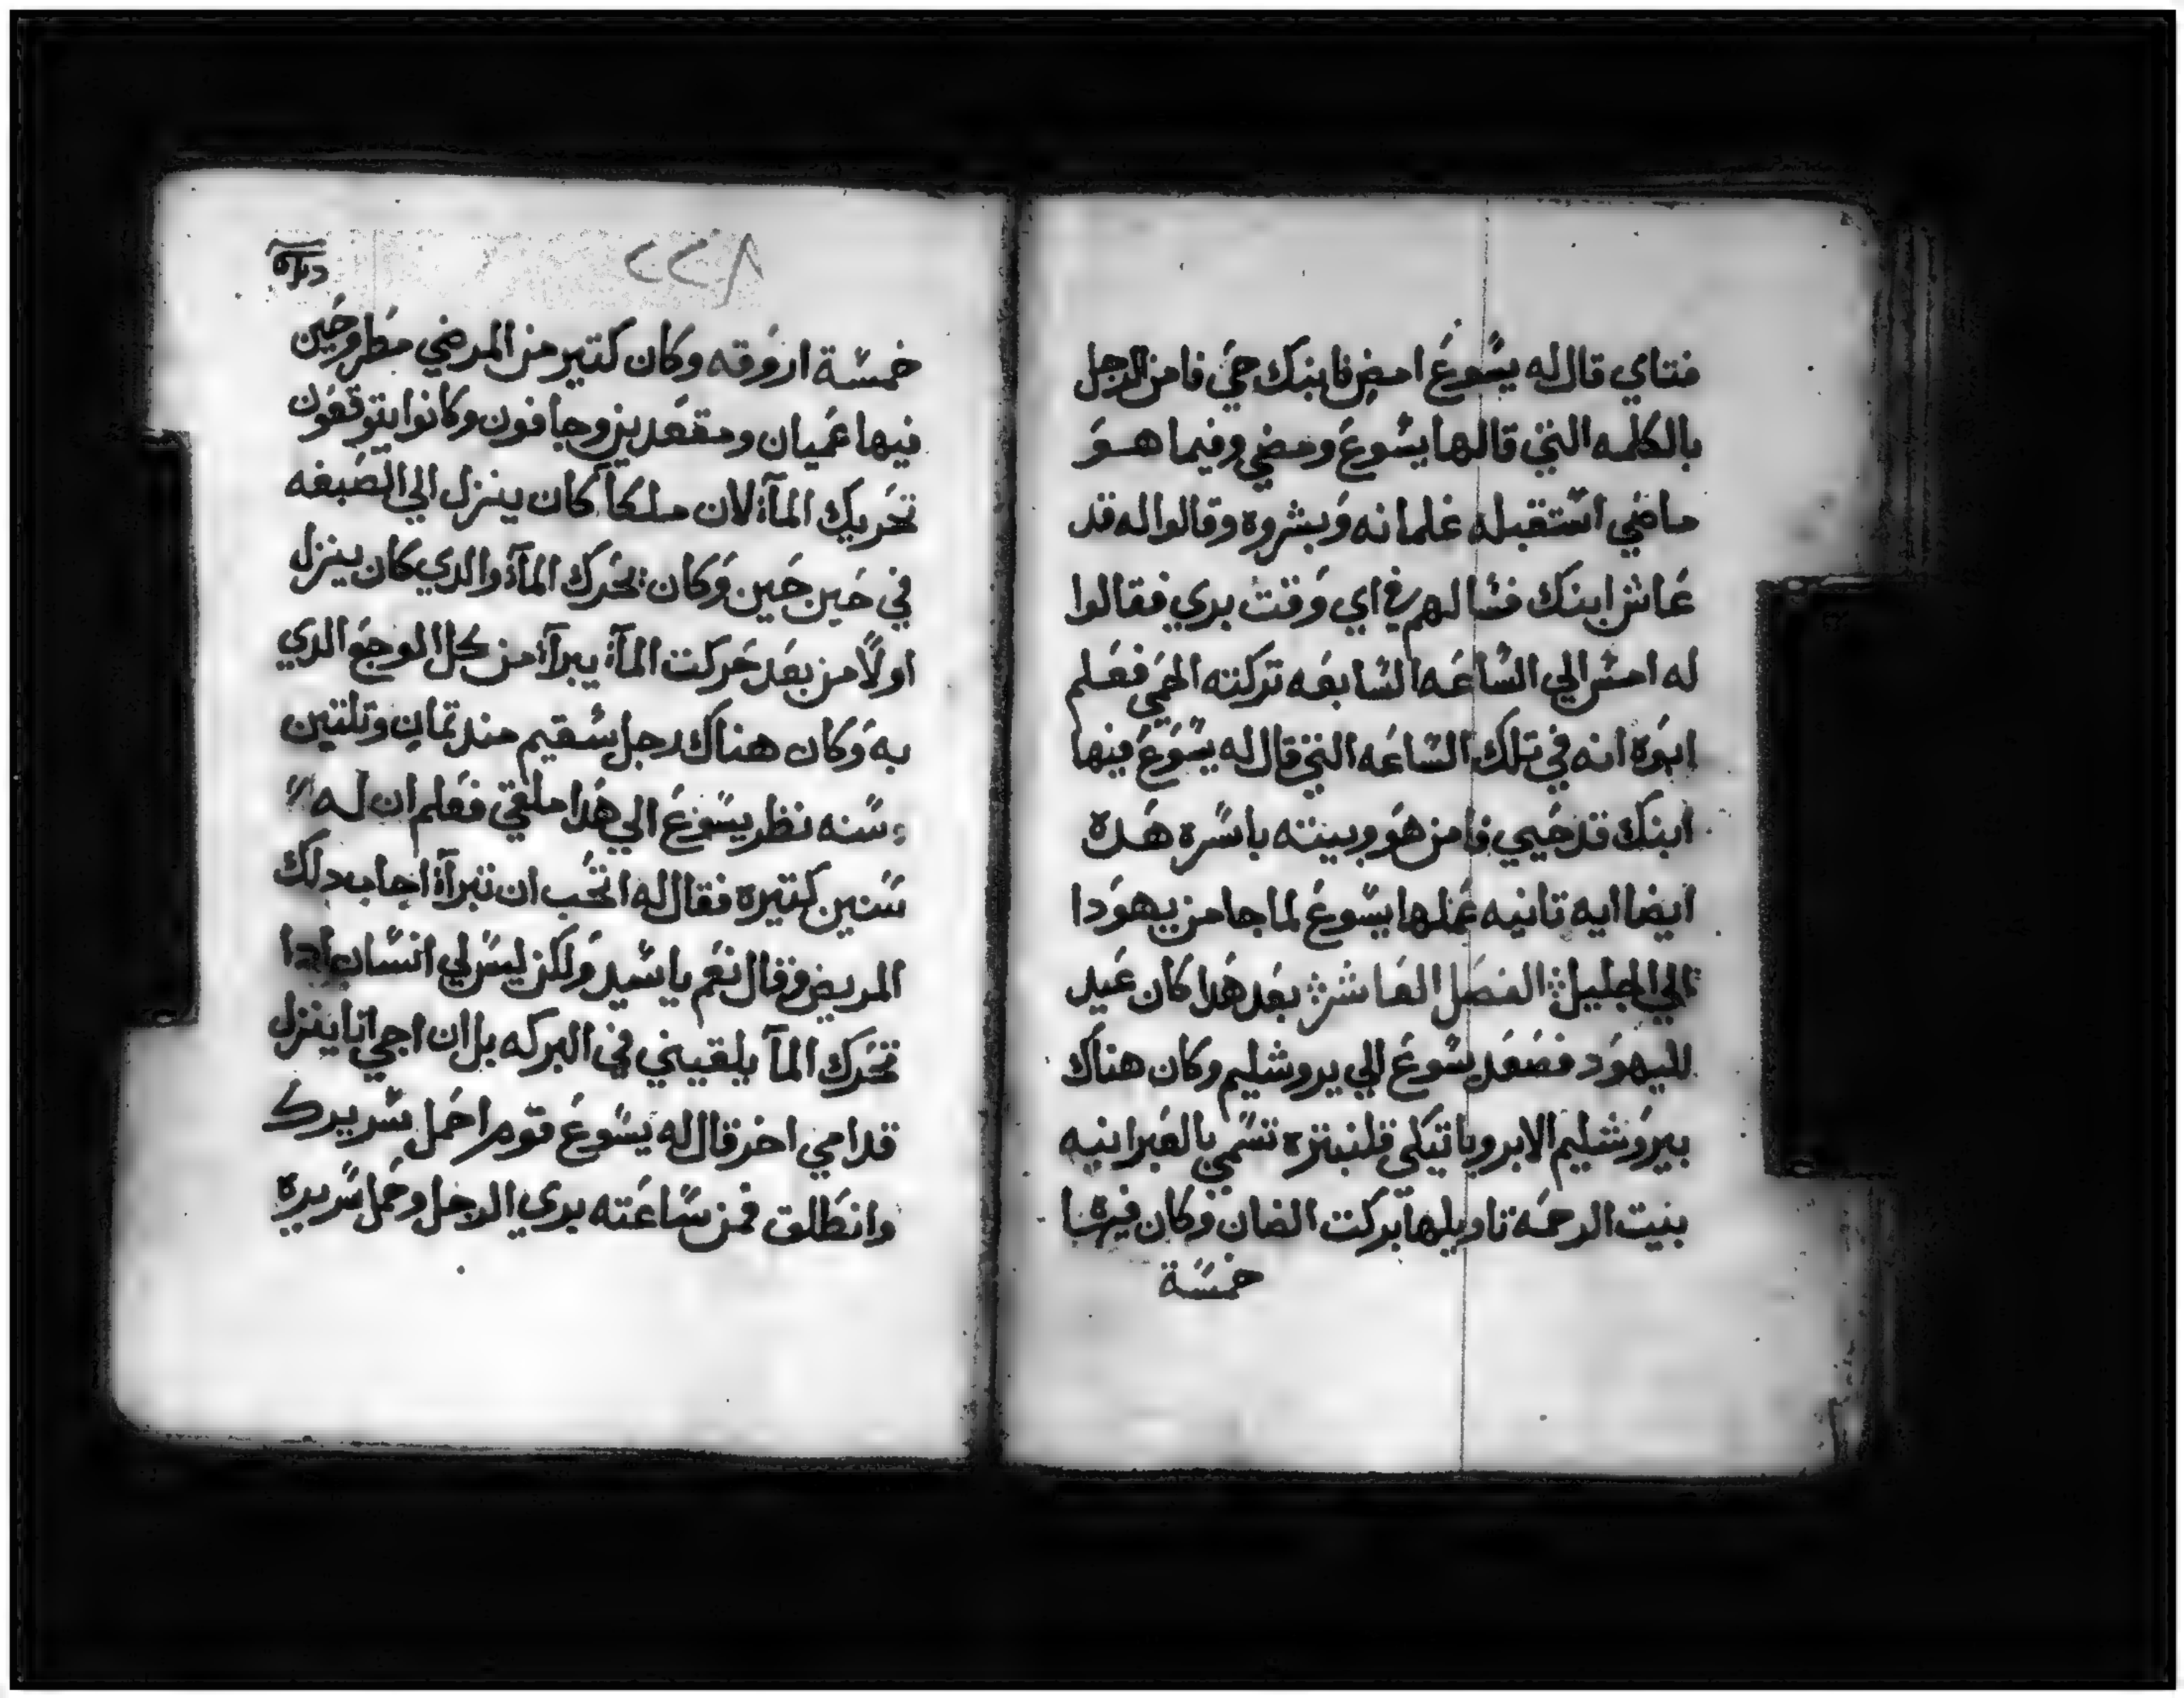 فتاي قال له يسوع امض فابنك حي فامن الرجل
بالكلمه التي قالها يسوع ومضي وفيما هو
ماضي استقبله غلمانه وبشروه وقالوا له قد
عاش ابنك فسالهم في اي وقت بري فقالوا
له امس الي الساعه السابعه تركته الحمي فعلم
ابوه انه في تلك الساعه التي قال له يسوع فيها
ابنك قد حيي فامن هو وبيته باسره هده
ايضا ايه تانيه عملها يسوع لما جا من يهودا
الي الجليل الفصل العاشر بعد هدا كان عيد
لليهود فصعد يسوع الي يروشليم وكان هناك
بيروشليم الابروباتيكي تسمي بالعبرانيه
بيت الرحمه تاويلها بركت الضان وكان فيها
خمسة
٢٢٨
خمسة اروقه وكان كتير من المرضي مطروحين
فيها عميان ومقعدين وجافون وكانوا يتوقعون
تحريك المآء لان ملكا كان ينزل الي الصبغه
في حين حين وكان تحرك المآء والدي كان ينزل
اولا من بعد حركت المآء يبرآ من كل الوجع الدي
به وكان هناك رجل سقيم مند تمان وتلتين
سنه نظر يسوع الي هدا ملقي فعلم ان له
سنين كتيره فقال له اتحب ان تبرآء اجاب دلك
المريض وقال نعم يا سيد ولكن ليس لي انسان ادا
تحرك المآ يلقيني في البركه بل ان اجي انا ينزل
قدامي اخر قال له يسوع قوم احمل سريرك
وانطلق فمن ساعته بري الرجل وحمل سريره